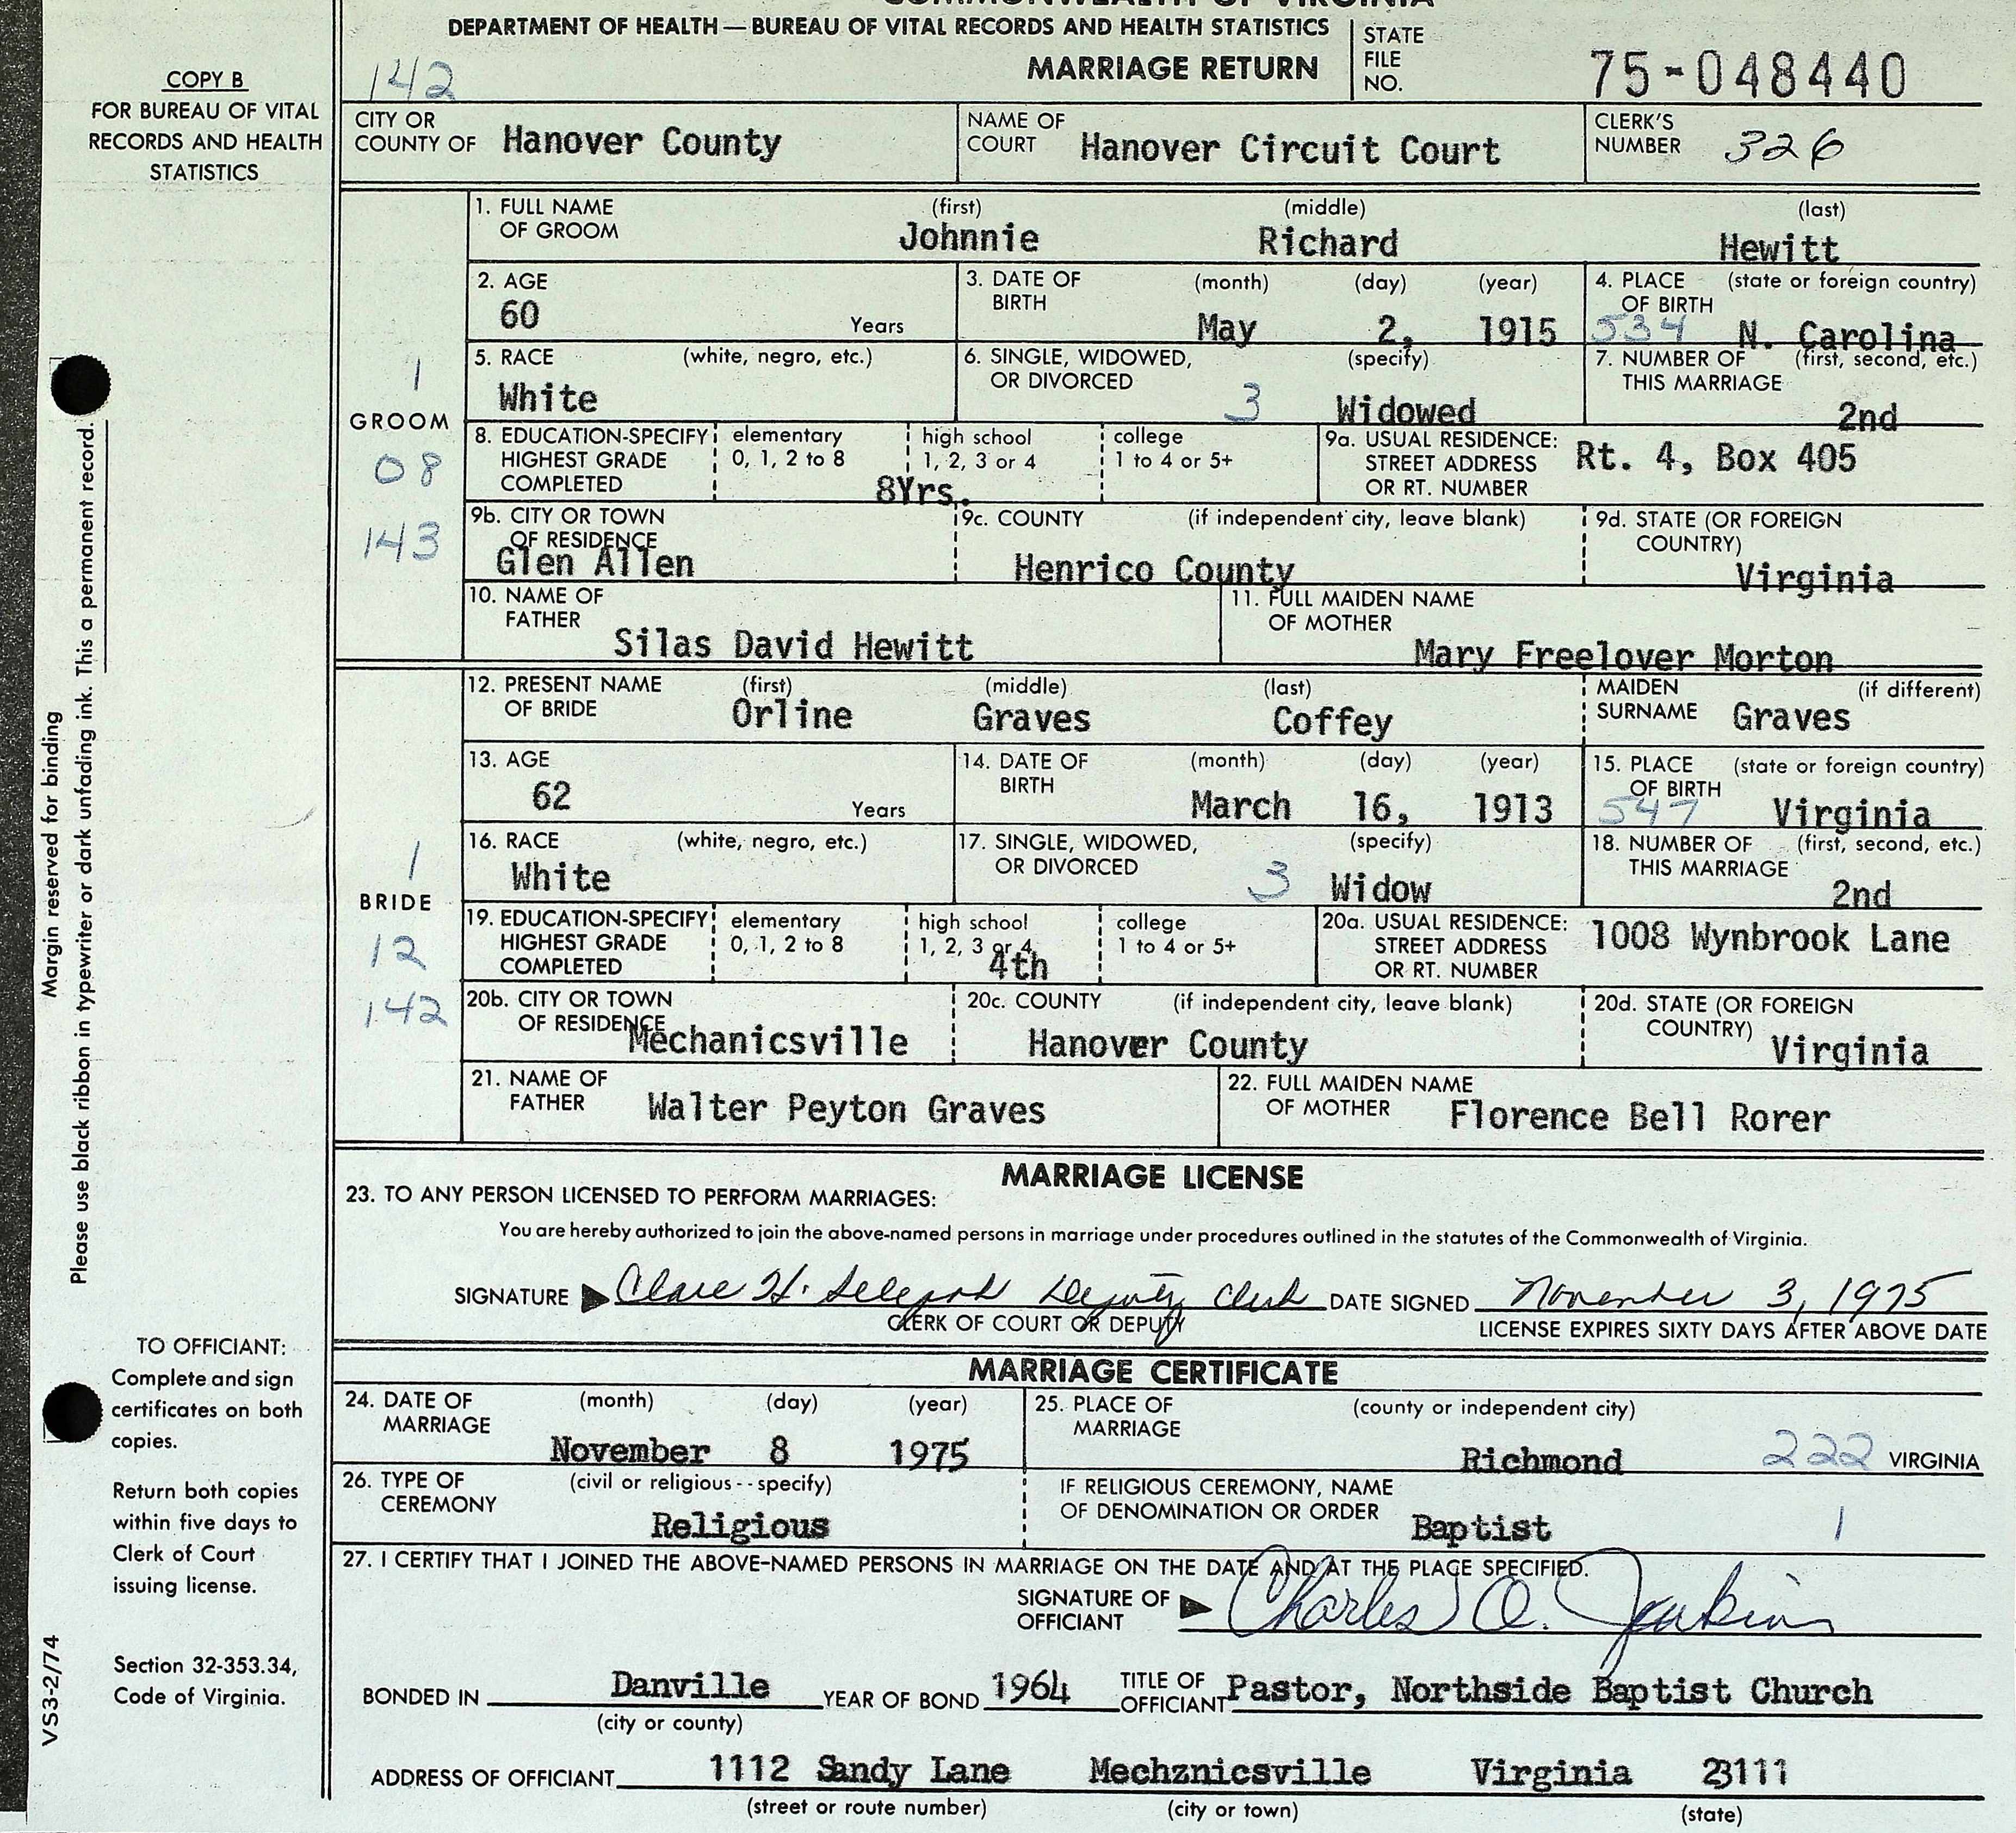 COMMONWEALTH OF VIRGINIA
DEPARTMENT OF HEALTH—BUREAU OF VITAL RECORDS AND HEALTH STATISTICS
MARRIAGE RETURN
STATE FILE NO. 75-048440
142
COPY B
FOR BUREAU OF VITAL
RECORDS AND HEALTH
STATISTICS
CITY OR COUNTY OF Hanover County
NAME OF COURT Hanover Circuit Court
CLERK'S NUMBER 326
1. FULL NAME OF GROOM (first) Johnnie (middle) Richard (last) Hewitt
2. AGE 60 Years
3. DATE OF BIRTH (month) May (day) 2, (year) 1915
4. PLACE OF BIRTH (state or foreign country) 534 N. Carolina
5. RACE (white, negro, etc.) White
6. SINGLE, WIDOWED, OR DIVORCED (specify) 3 Widowed
7. NUMBER OF THIS MARRIAGE (first, second, etc.) 2nd
1
GROOM
08
143
8. EDUCATION-SPECIFY HIGHEST GRADE COMPLETED elementary 0, 1, 2 to 8 high school 1, 2, 3 or 4 college 1 to 4 or 5+ 8Yrs.
9a. USUAL RESIDENCE: STREET ADDRESS OR RT. NUMBER Rt. 4, Box 405
9b. CITY OR TOWN OF RESIDENCE Glen Allen
9c. COUNTY (if independent city, leave blank) Henrico County
9d. STATE (OR FOREIGN COUNTRY) Virginia
10. NAME OF FATHER Silas David Hewitt
11. FULL MAIDEN NAME OF MOTHER Mary Freelover Morton
12. PRESENT NAME OF BRIDE (first) Orline (middle) Graves (last) Coffey
MAIDEN SURNAME (if different) Graves
13. AGE 62 Years
14. DATE OF BIRTH (month) March (day) 16, (year) 1913
15. PLACE OF BIRTH (state or foreign country) 547 Virginia
16. RACE (white, negro, etc.) White
17. SINGLE, WIDOWED, OR DIVORCED (specify) 3 Widow
18. NUMBER OF THIS MARRIAGE (first, second, etc.) 2nd
1
BRIDE
12
142
19. EDUCATION-SPECIFY HIGHEST GRADE COMPLETED elementary 0, 1, 2 to 8 high school 1, 2, 3 or 4 4th college 1 to 4 or 5+
20a. USUAL RESIDENCE: STREET ADDRESS OR RT. NUMBER 1008 Wynbrook Lane
20b. CITY OR TOWN OF RESIDENCE Mechanicsville
20c. COUNTY (if independent city, leave blank) Hanover County
20d. STATE (OR FOREIGN COUNTRY) Virginia
21. NAME OF FATHER Walter Peyton Graves
22. FULL MAIDEN NAME OF MOTHER Florence Bell Rorer
MARRIAGE LICENSE
23. TO ANY PERSON LICENSED TO PERFORM MARRIAGES:
You are hereby authorized to join the above-named persons in marriage under procedures outlined in the statutes of the Commonwealth of Virginia.
SIGNATURE H. Deputy Clerk DATE SIGNED November 3, 1975
CLERK OF COURT OR DEPUTY
LICENSE EXPIRES SIXTY DAYS AFTER ABOVE DATE
MARRIAGE CERTIFICATE
24. DATE OF MARRIAGE (month) November (day) 8 (year) 1975
25. PLACE OF MARRIAGE (county or independent city) Richmond 222 VIRGINIA
26. TYPE OF CEREMONY (civil or religious--specify) Religious
IF RELIGIOUS CEREMONY, NAME OF DENOMINATION OR ORDER Baptist 1
27. I CERTIFY THAT I JOINED THE ABOVE-NAMED PERSONS IN MARRIAGE ON THE DATE AND AT THE PLACE SPECIFIED.
SIGNATURE OF OFFICIANT Charles O. Jenkins
BONDED IN Danville YEAR OF BOND 1964 TITLE OF OFFICIANT Pastor, Northside Baptist Church
(city or county)
ADDRESS OF OFFICIANT 1112 Sandy Lane Mechznicsville Virginia 23111
(street or route number) (city or town) (state)
Margin reserved for binding
Please use black ribbon in typewriter or dark unfading ink. This a permanent record.
TO OFFICIANT:
Complete and sign
certificates on both
copies.
Return both copies
within five days to
Clerk of Court
issuing license.
Section 32-353.34,
Code of Virginia.
VS3-2/74